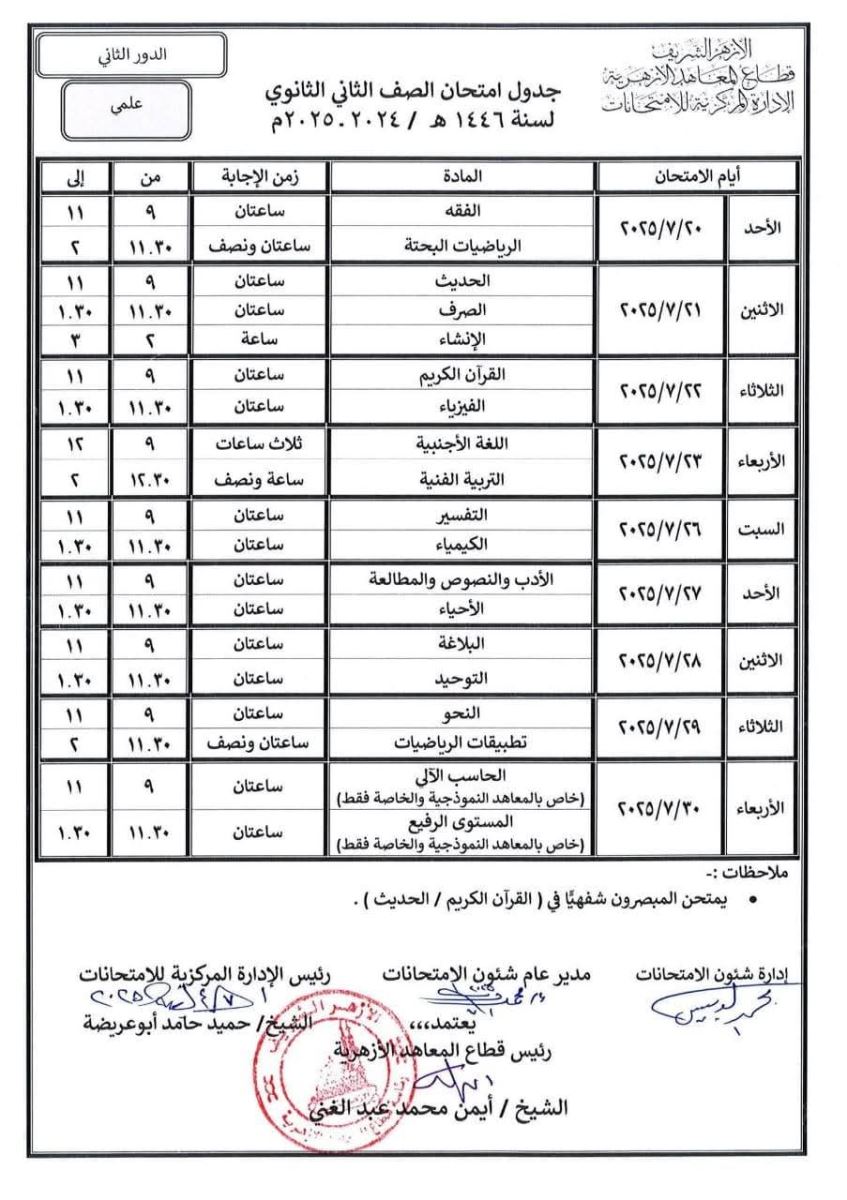 الأزهر الشريف
قطاع المعاهد الأزهرية
الإدارة المركزية للامتحانات
جدول امتحان الصف الثاني الثانوي
لسنة ١٤٤٦ هـ / ٢٠٢٤ ـ ٢٠٢٥م
الدور الثاني
علمي
أيام الامتحان المادة زمن الإجابة من إلى
الأحد ٢٠٢٥/٧/٢٠ الفقه ساعتان ٩ ١١
الرياضيات البحتة ساعتان ونصف ١١.٣٠ ٢
الاثنين ٢٠٢٥/٧/٢١ الحديث ساعتان ٩ ١١
الصرف ساعتان ١١.٣٠ ١.٣٠
الإنشاء ساعة ٢ ٣
الثلاثاء ٢٠٢٥/٧/٢٢ القرآن الكريم ساعتان ٩ ١١
الفيزياء ساعتان ١١.٣٠ ١.٣٠
الأربعاء ٢٠٢٥/٧/٢٣ اللغة الأجنبية ثلاث ساعات ٩ ١٢
التربية الفنية ساعة ونصف ١٢.٣٠ ٢
السبت ٢٠٢٥/٧/٢٦ التفسير ساعتان ٩ ١١
الكيمياء ساعتان ١١.٣٠ ١.٣٠
الأحد ٢٠٢٥/٧/٢٧ الأدب والنصوص والمطالعة ساعتان ٩ ١١
الأحياء ساعتان ١١.٣٠ ١.٣٠
الاثنين ٢٠٢٥/٧/٢٨ البلاغة ساعتان ٩ ١١
التوحيد ساعتان ١١.٣٠ ١.٣٠
الثلاثاء ٢٠٢٥/٧/٢٩ النحو ساعتان ٩ ١١
تطبيقات الرياضيات ساعتان ونصف ١١.٣٠ ٢
الأربعاء ٢٠٢٥/٧/٣٠ الحاسب الآلي ساعتان ٩ ١١
(خاص بالمعاهد النموذجية والخاصة فقط)
المستوى الرفيع ساعتان ١١.٣٠ ١.٣٠
(خاص بالمعاهد النموذجية والخاصة فقط)
ملاحظات :-
• يمتحن المبصرون شفهيًّا في ( القرآن الكريم / الحديث ) .
إدارة شئون الامتحانات مدير عام شئون الامتحانات رئيس الإدارة المركزية للامتحانات
يعتمد،،، الشيخ/ حميد حامد أبوعريضة
رئيس قطاع المعاهد الأزهرية
الشيخ / أيمن محمد عبد الغني